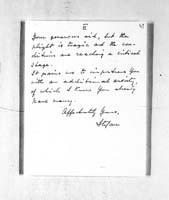 II
Your generous aid, but the
plight is tragic and the con-
ditions are reaching a critical
stage.
It pains me to importune You
with an additional anxiety,
of which I know You already
have many.
Affectionately Yours,
Stefan